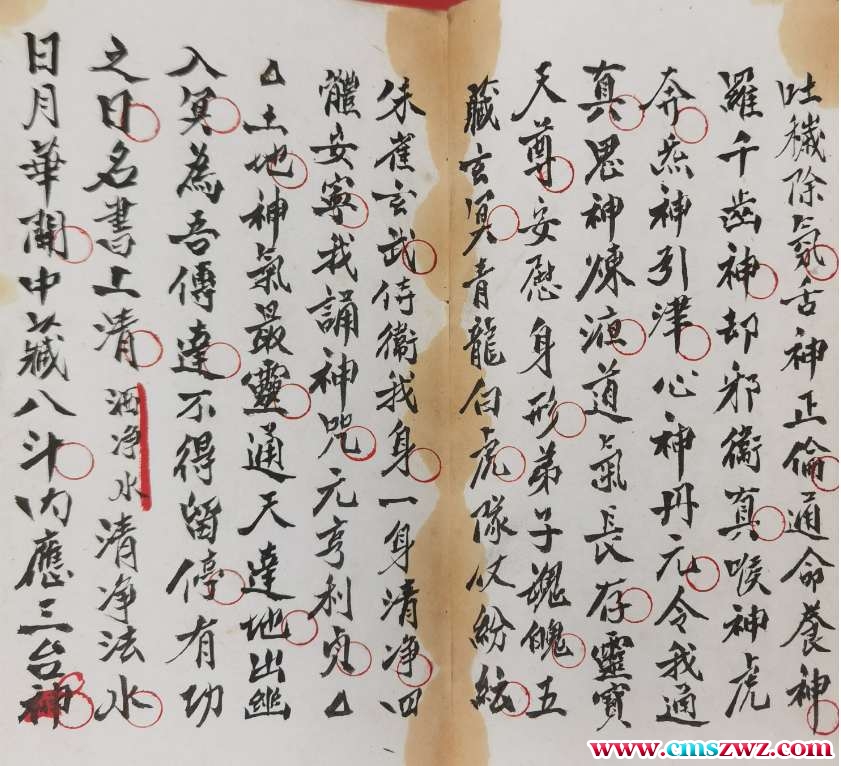 吐穢除氛舌神正倫通命養神
羅千齒神却邪衞真喉神虎
奔炁神引津心神丹元令我通
真思神煉液道氣長存靈寶
天尊安慰身形弟子魂魄五
藏玄冥青龍白虎隊仗紛紜
朱雀玄武侍衞我身一身清净四
體安寧我誦神咒元亨利貞△
△土地神氣最靈通天達地出幽
入冥為吾傳達不得留停有功
之日名書上清洒净水清净法水
日月華開中藏八斗内應三台神
www.cmszwz.com